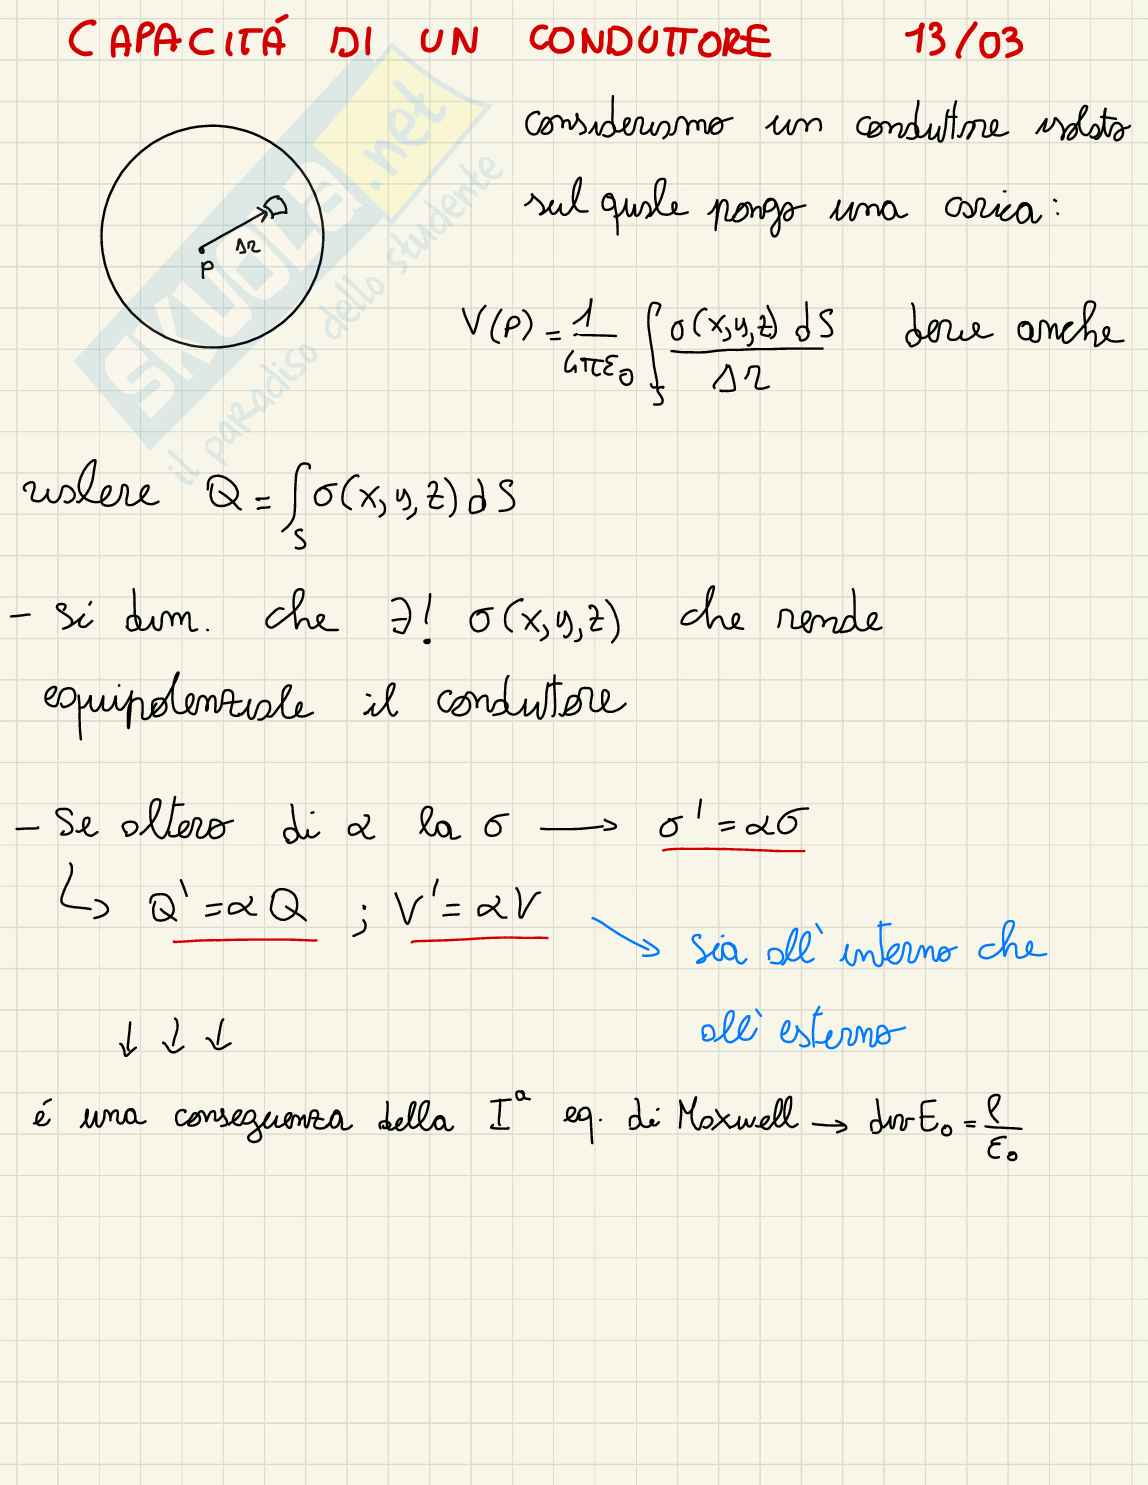 CAPACITÁ DI UN CONDUTTORE 13/03
consideriamo un conduttore isolato
sul quale pongo una carica:
P Δr
V(P) = 1/4πε₀ ∫_S σ(x,y,z) dS / Δr deve anche
valere Q = ∫_S σ(x,y,z) dS
- Si dim. che ∃! σ(x,y,z) che rende
equipotenziale il conduttore
- Se altero di α la σ → σ' = ασ
↳ Q' = αQ ; V' = αV
→ sia all'interno che
all'esterno
↓ ↓ ↓
é una conseguenza della Iª eq. di Maxwell → div E₀ = ρ/ε₀
SKUOLA.net
il paradiso dello studente